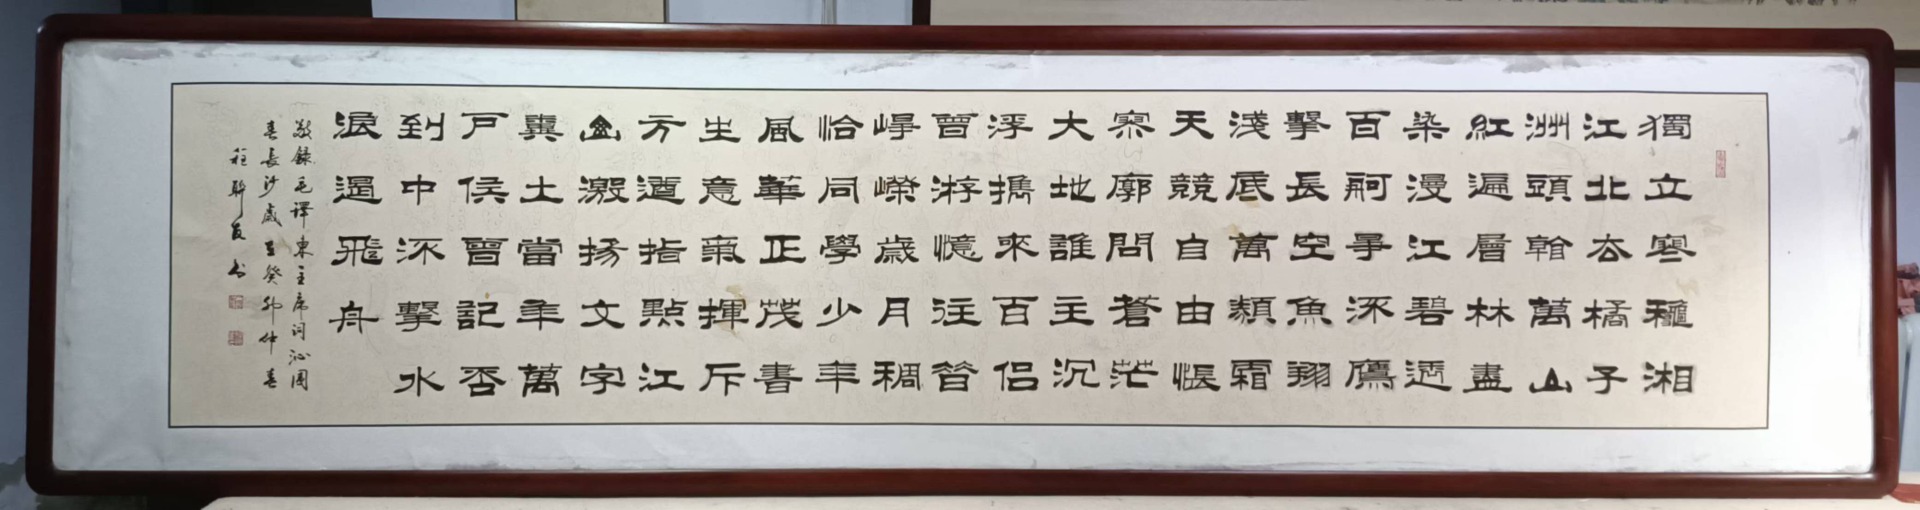 獨立寒穐湘
江北去橘子
洲頭看萬山
紅遍層林盡
染漫江碧透
百舸爭流鷹
擊長空魚翔
淺底萬類霜
天競自由悵
寥廓問蒼茫
大地誰主沉
浮攜來百侶
曾游憶往昔
崢嶸歲月稠
恰同學少年
風華正茂書
生意氣揮斥
方遒指點江
山激揚文字
糞土當年萬
戶侯曾記否
到中流擊水
浪遏飛舟
敬錄毛譯東主席词沁園
春長沙歲在癸卯仲春
程聯友书